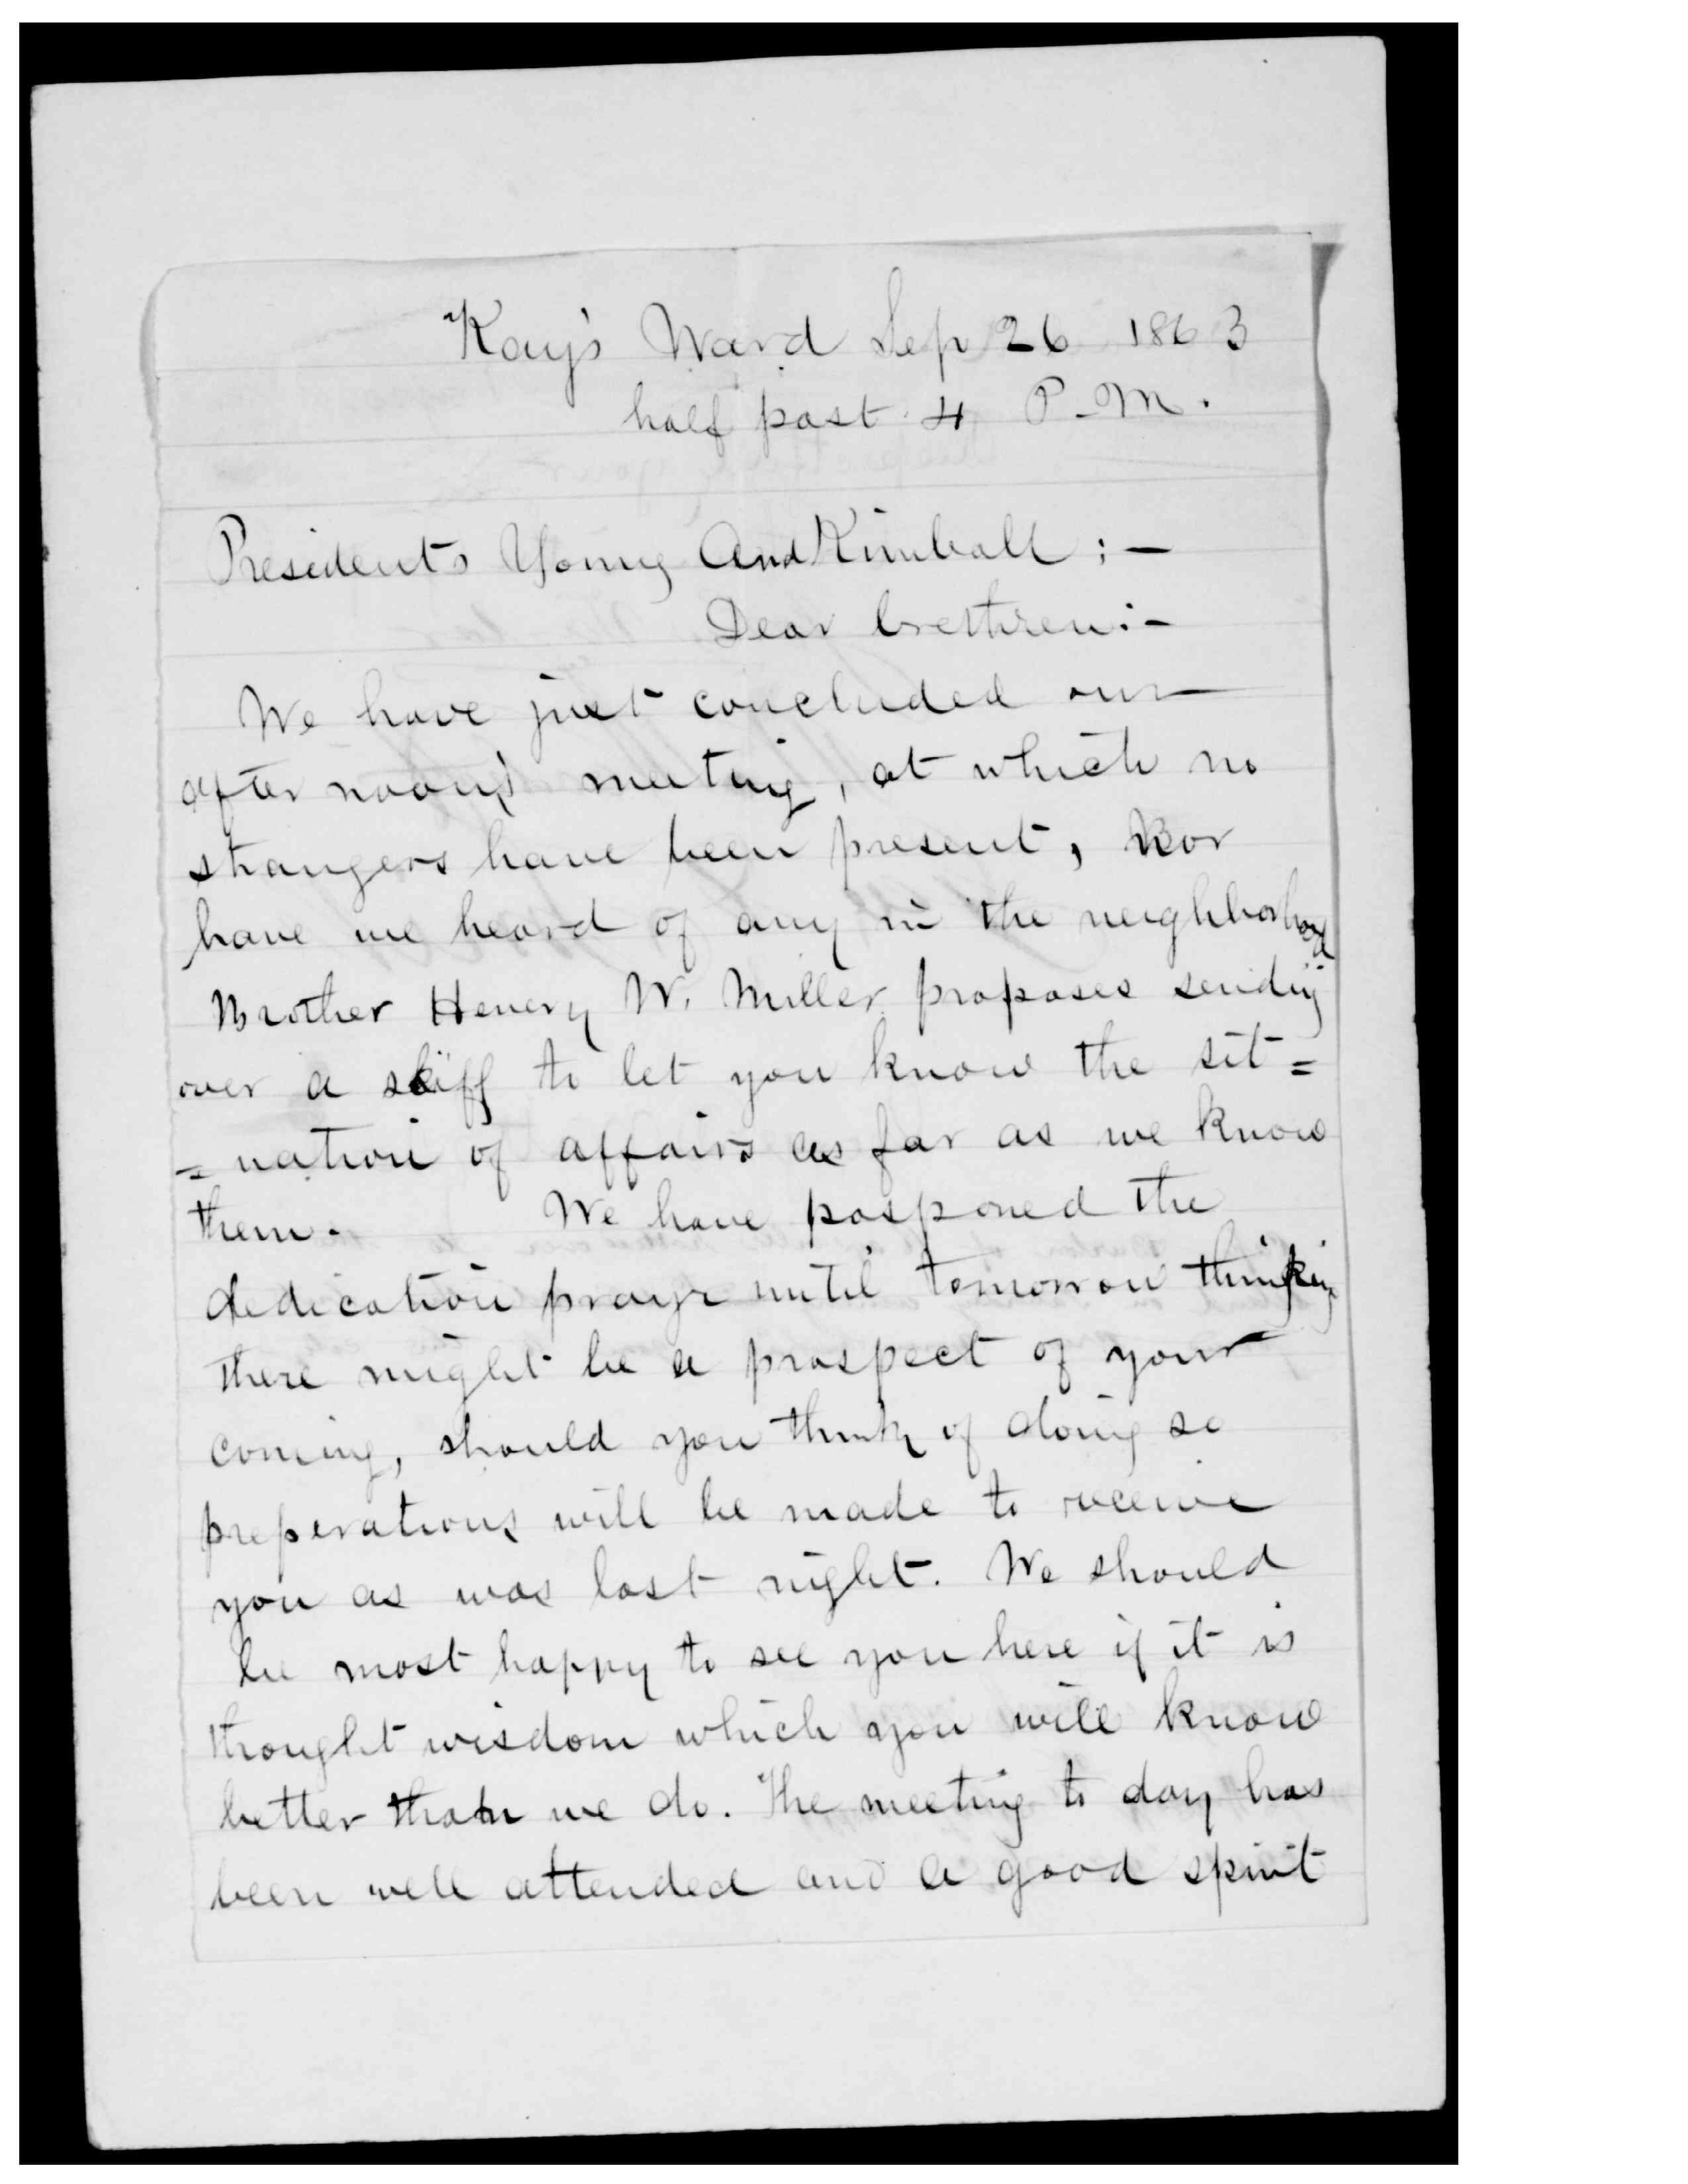 Kay's Ward Sep 26 1863
half past 4 P-M.
Presidents Young And Kimball ; —
Dear brethren:-
We have just concluded our
after noon's meeting, at which no
strangers have been present, Nor
have we heard of any in the neighborhood
Brother Henery W. Miller proposes sending
over a skiff to let you know the sit=
=uation of affairs as far as we know
them. We have posponed the
dedication prayr until tomorrow thinking
there might be a prospect of your
coming, should you think of doing so
preperations will be made to receive
you as was last night. We should
be most happy to see you here if it is
thought wisdom which you will know
better than we do. The meeting to day has
been well attended and a good spirit